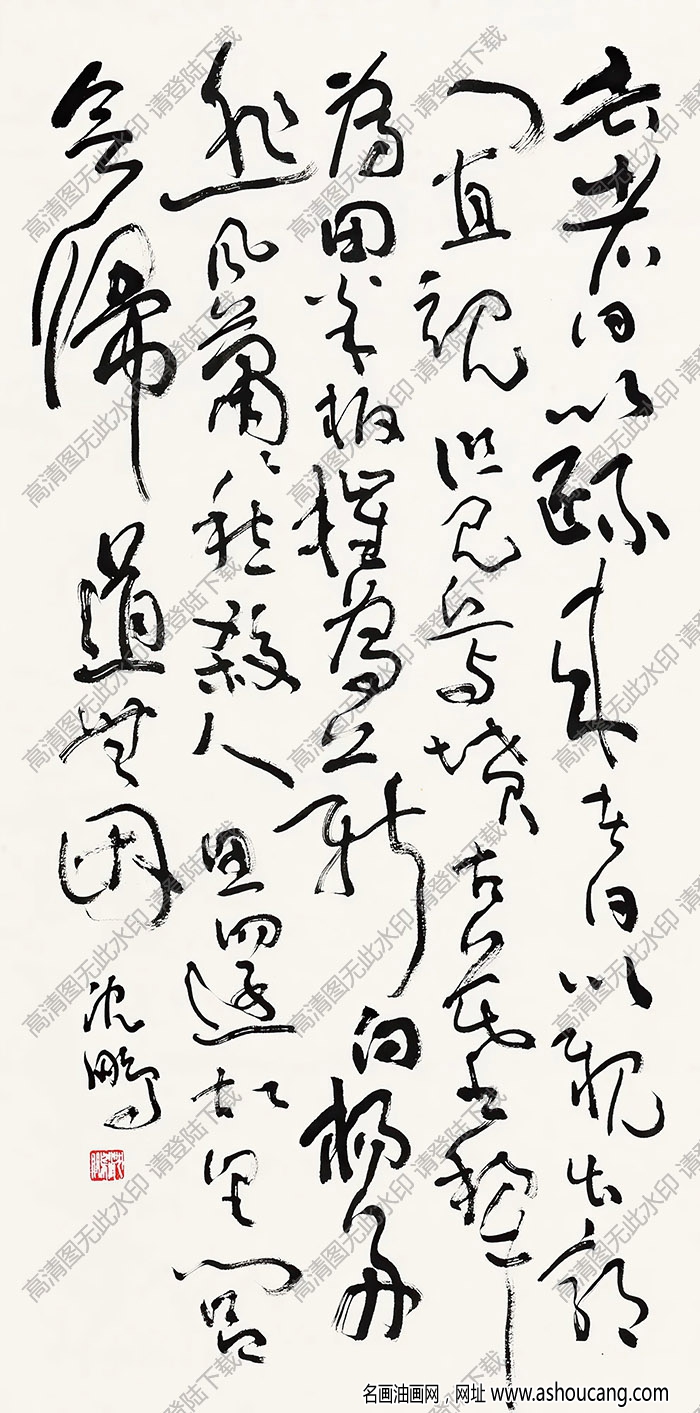 去者日以疏来者日以亲出郭
门直视但见丘与坟古墓犁
为田松柏摧为薪白杨多
悲风萧萧愁杀人思还故里闾
欲归道无因
沈鹏
高清图无此水印 请登陆下载
名画油画网，网址 www.ashoucang.com